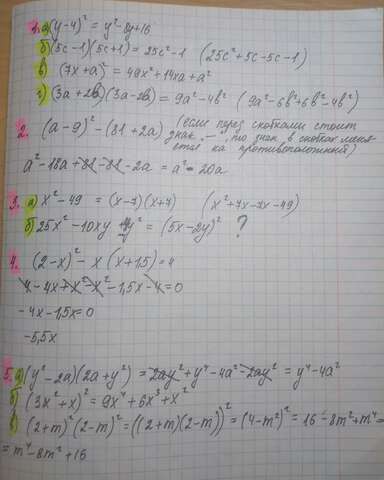 1. а) (y-4)² = y²-8y+16
б) (5c-1)(5c+1) = 25c²-1 (25c²+5c-5c-1)
в) (7x+a)² = 49x²+14xa+a²
г) (3a+2b)(3a-2b) = 9a²-4b² (9a²-6b²+6b²-4b²)
2. (a-9)²-(81+2a) (если перед скобками стоит
знак -, то знак в скобках меня-
ется на противоположный)
a²-18a+81-81-2a = a²-20a
3. а) x²-49 = (x-7)(x+7) (x²+7x-7x-49)
б) 25x²-10xy 4y² = (5x-2y)² ?
4. (2-x)²-x(x+1,5)=4
4-4x+x²-x²-1,5x-4=0
-4x-1,5x=0
-5,5x
5. а) (y²-2a)(2a+y²) = 2ay²+y⁴-4a²-2ay² = y⁴-4a²
б) (3x²+x)² = 9x⁴+6x³+x²
в) (2+m)²(2-m)² = ((2+m)(2-m))² = (4-m²)² = 16-8m²+m⁴=
= m⁴-8m²+16